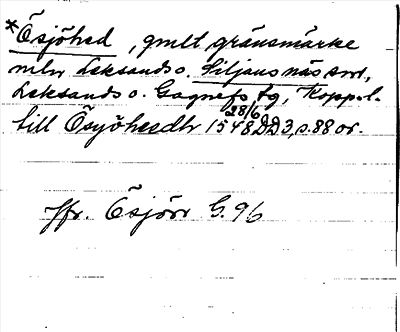 *Ösjöhed, gmlt gränsmärke
mln Leksands o. Siljansnäs snr,
Leksands o. Gagnefs tg, Koppl.
till Ösyöhesdh 1548 28/6 DD3, s. 88 or.
Jfr. Ösjörr G. 96